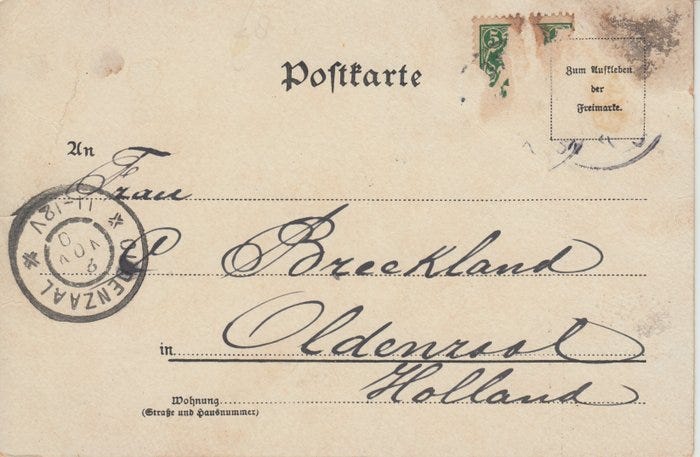 5
Postkarte
Zum Aufkleben
der
Freimarke.
An
Frau
P Breekland
in Oldenzaal
Holland
Wohnung
(Straße und Hausnummer)
OLDENZAAL
11-12V
NOV